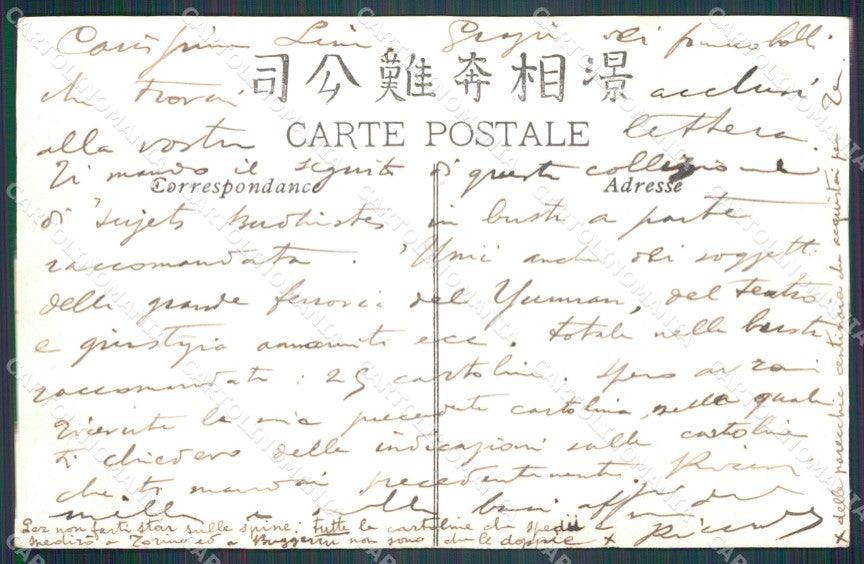 Carissima Lina Grazie dei francobolli
司公難奔相濵
che trovai acclusi
alla vostra lettera.
CARTE POSTALE
Ti mando il seguito di questa collezione
Correspondance
Adresse
di "sujets Budhistes in busta a parte
raccomandata. Unii anche dei soggetti
della grande ferrovia del Yunnan, del teatro
e giustizia annamiti ecc. Totale nella busta
raccomandata: 25 cartoline. Spero avrai
ricevute la mia precedente cartolina nella quale
ti chiedevo delle indicazioni sulle cartoline
che ti mandai precedentemente. Ricevi
mille e mille baci aff. dal
Riccardo
Per non farti star sulle spine: Tutte le cartoline che spedii e
spedirò a Torino ed a Buggerru non sono che le doppie x
x delle parecchie centinaia da acquistai per
CARTOLINOMANIA